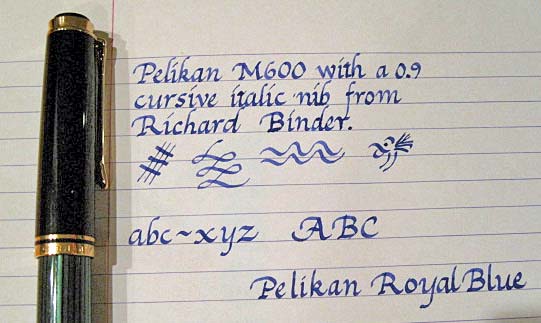 Pelikan M600 with a 0.9
cursive italic nib from
Richard Binder.
abc~xyz ABC
Pelikan Royal Blue